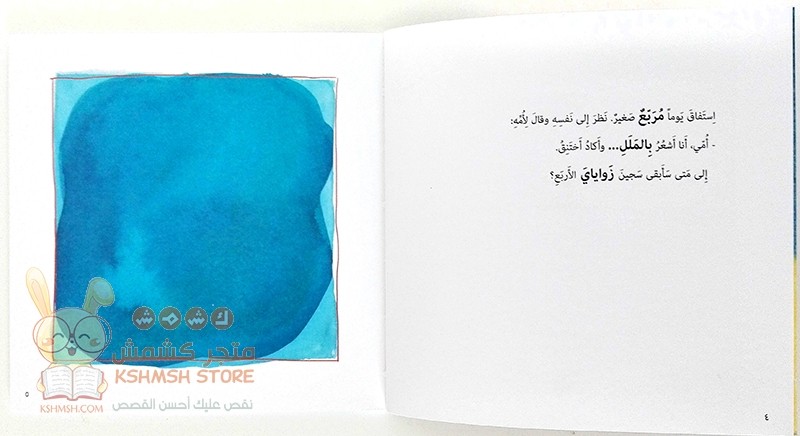 اِستَفاقَ يَوماً مُرَبّعٌ صَغيرٌ. نَظرَ إِلى نَفسِهِ وقالَ لِأُمِّهِ:
- أُمّي، أَنا أَشعُرُ بِالمَلَلِ... وأَكادُ أَختَنِقُ.
إِلى مَتى سَأَبقى سَجينَ زَوايايَ الأَربَعِ؟
٤
كشمش
متجر كشمش
KSHMSH STORE
نقص عليك أحسن القصص
KSHMSH.COM
٥